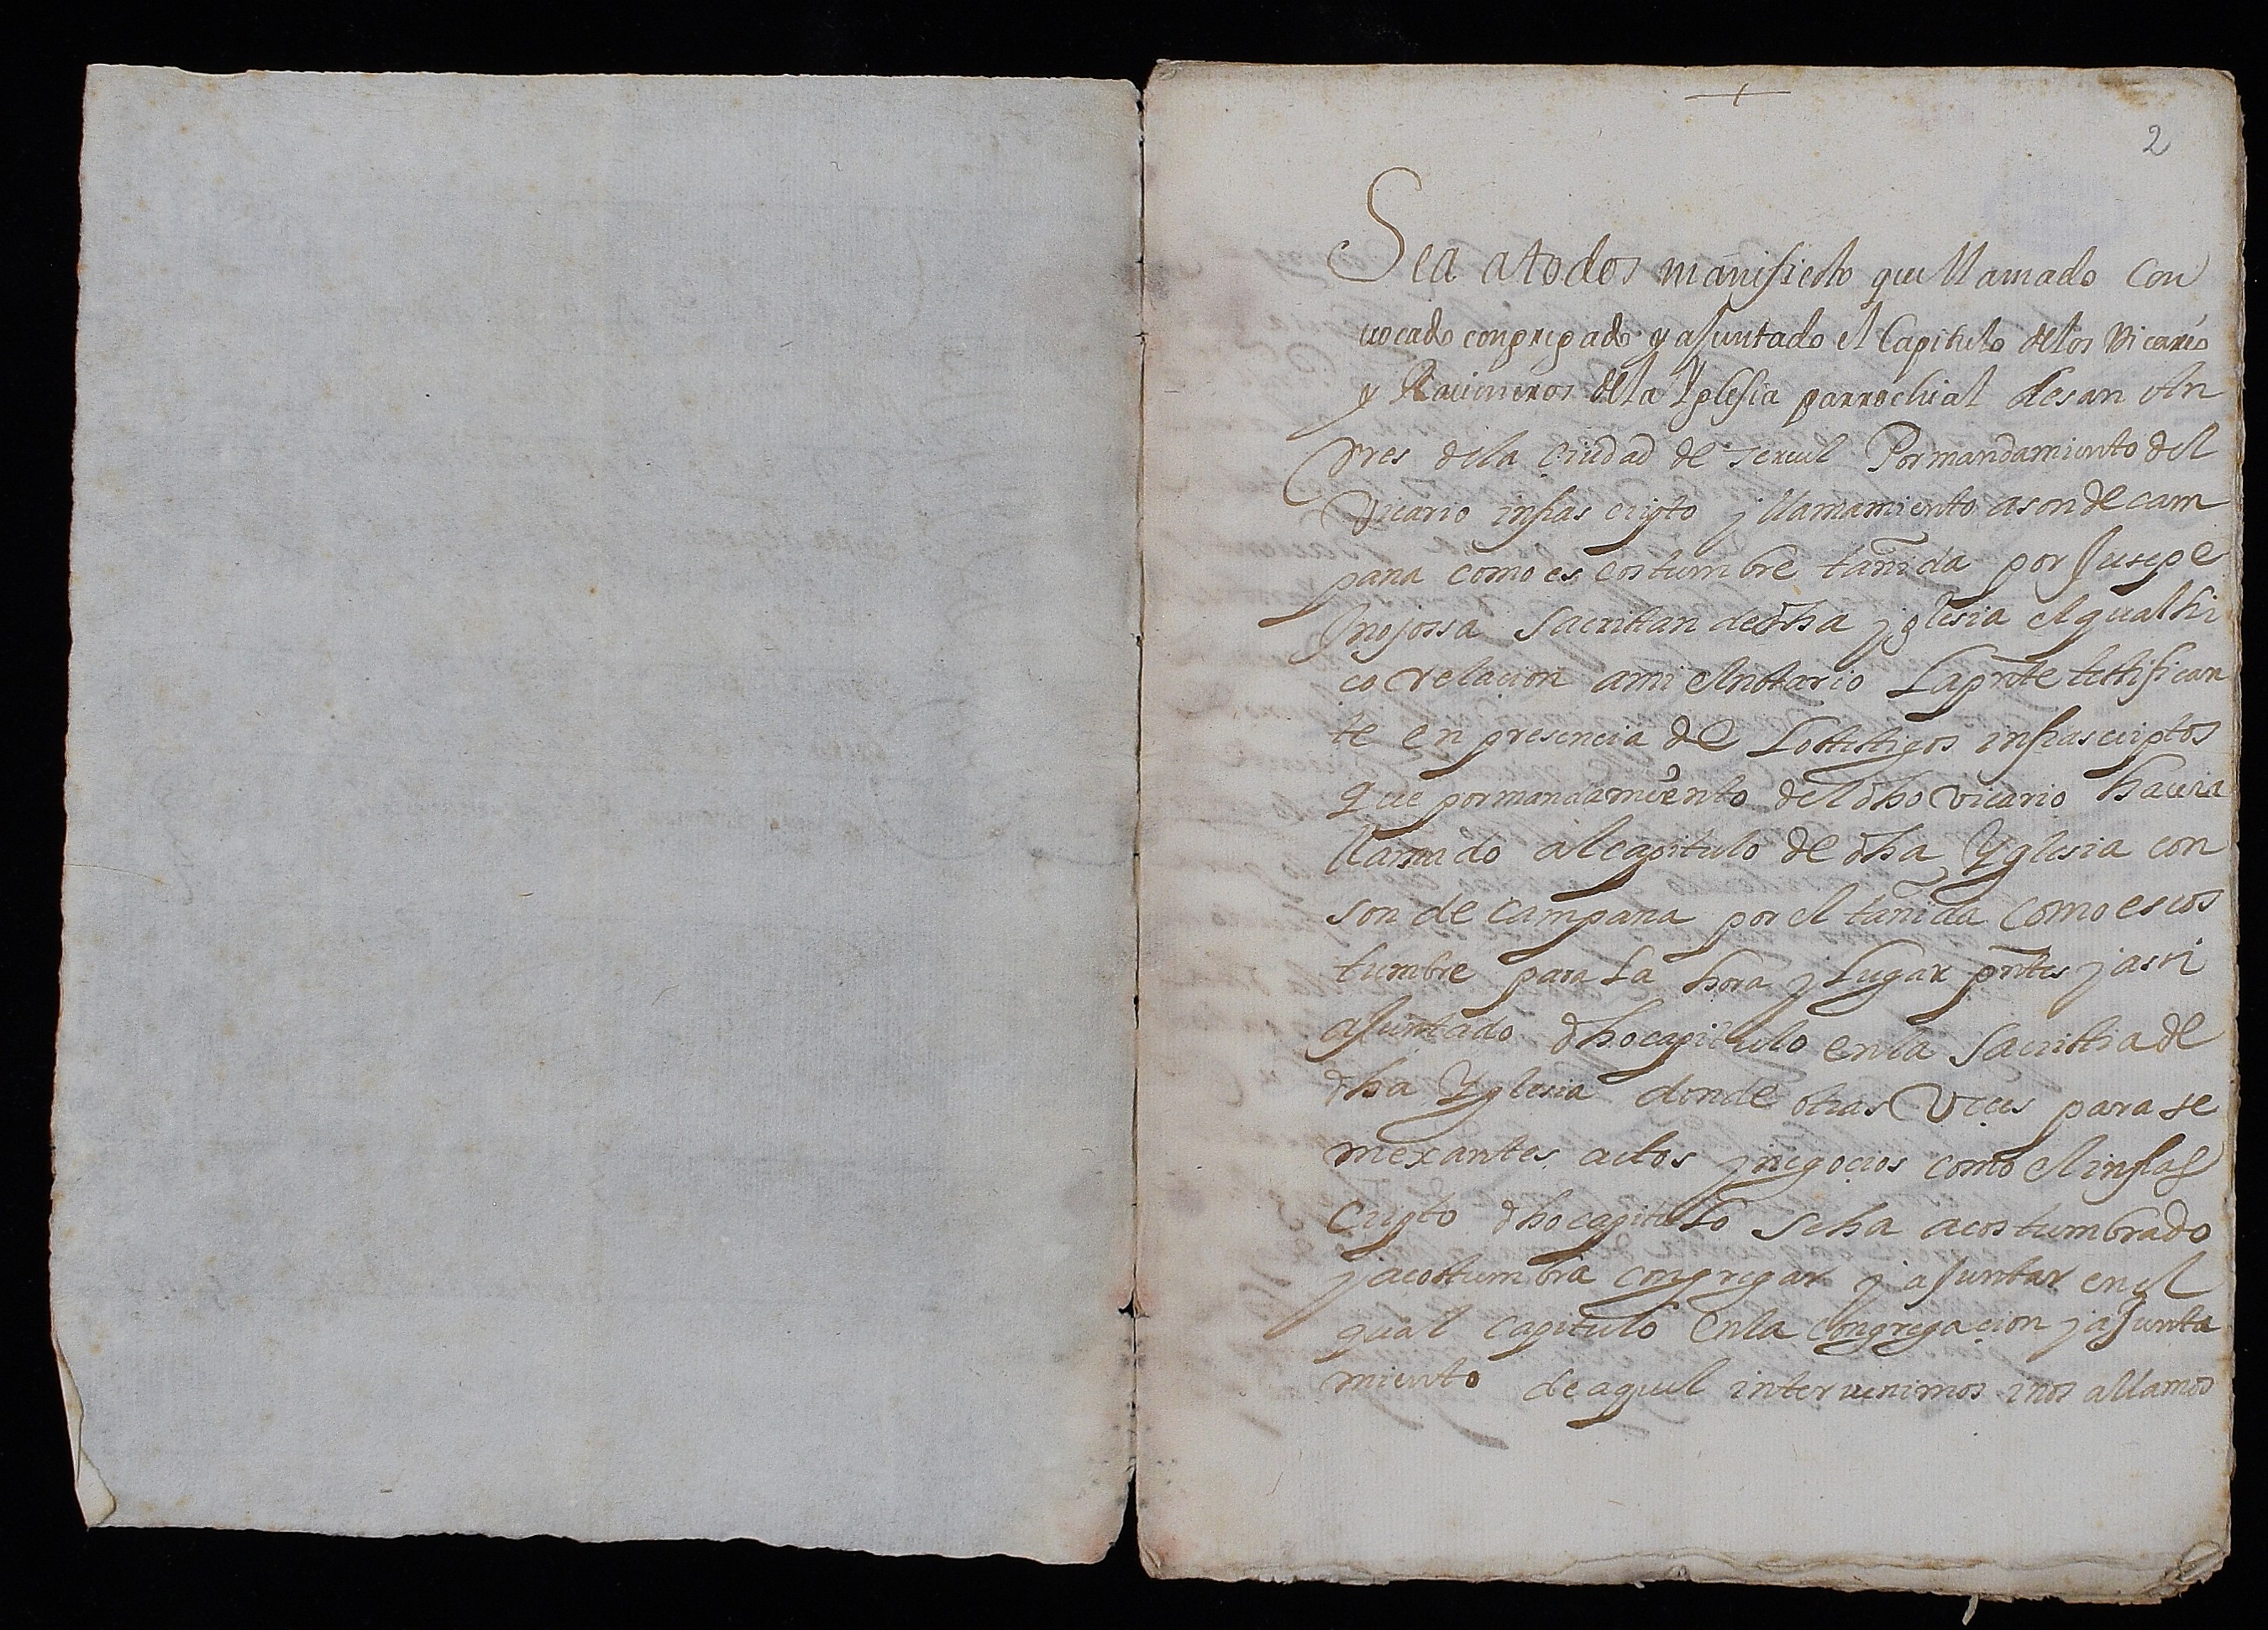 2
Sea atodos manifiesto que llamado con
uocado congregado y ajuntado el Capitulo delos Vicario
y Racioneros dela Yglesia parrochial desan An
dres dela Ciudad de Teruel Pormandamiento del
Vicario infras cripto j llamamiento ason de cam
pana como es costumbre tañida por Jusepe
Jnojossa Sacristan dedha jglesia elqual hi
ço relacion ami elnotario Lapnte testifican
te en presencia de Lostestigos infrascriptos
que pormandamiento deldho vicario hauia
llamado alcapitulo de dha Yglesia con
son de campana por el tañida como escos
tumbre para La hora j Lugar pntes j assi
ajuntado dhocapitulo enla Sacristia de
dha Yglesia donde otras veces para se
mexantes actos j negocios como el infras
cripto dhocapitulo seha acostumbrado
j acostumbra congregar j ajuntar enel
qual capitulo enla congregacion j ajunta
miento de aquel interuenimos inos allamos